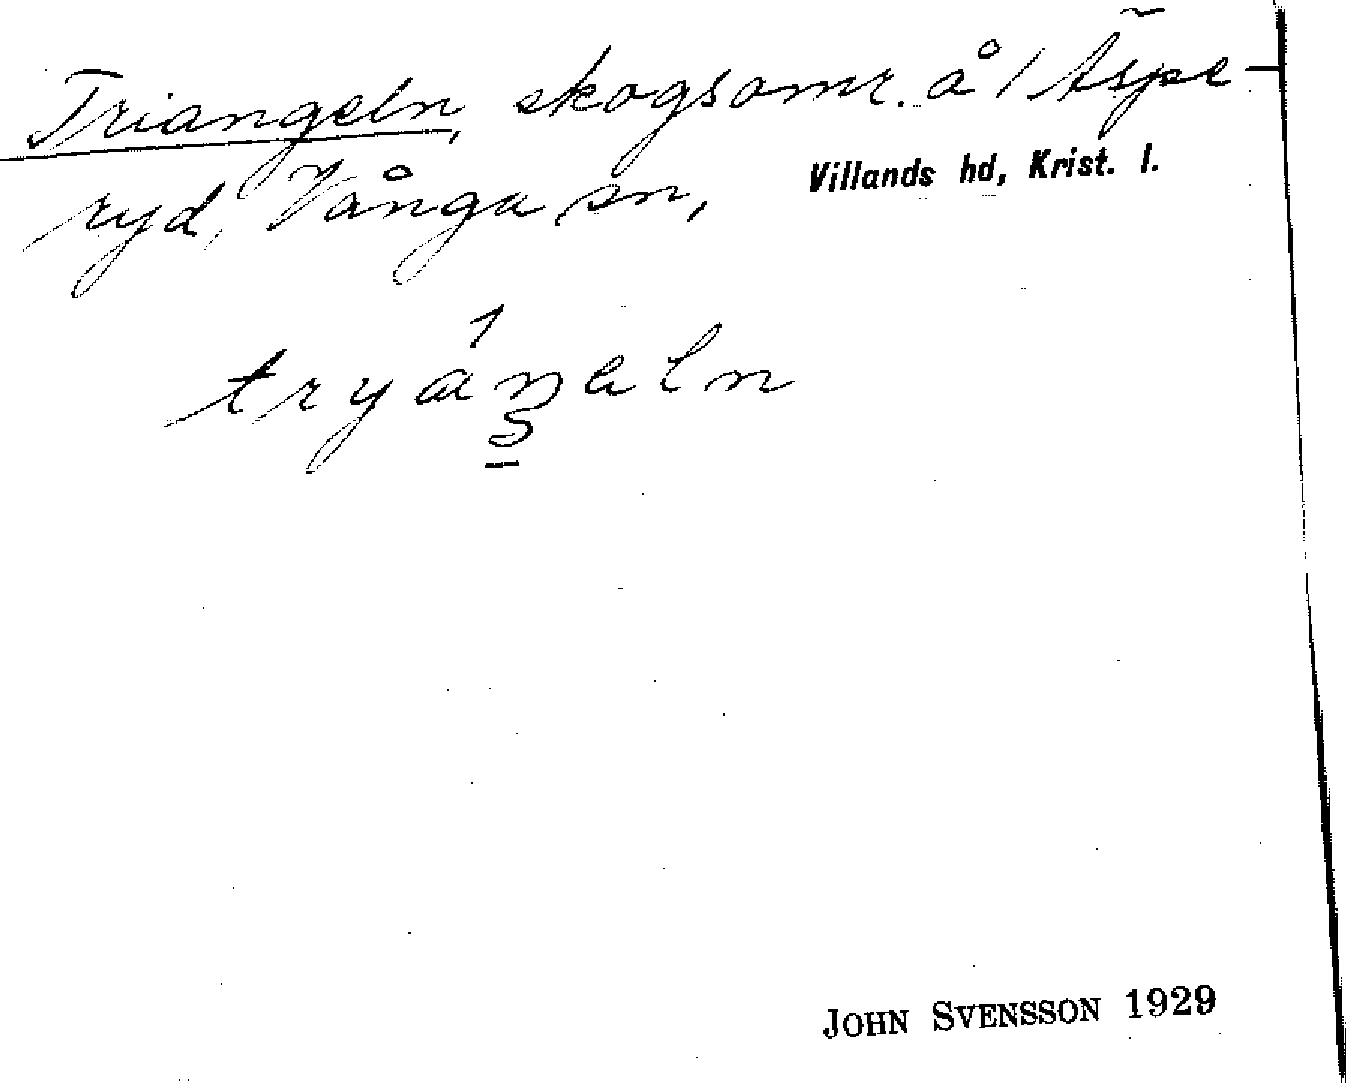 Triangeln, skogsomr. å / Äspe-
ryd, Vånga sn, Villands hd, Krist. l.
JOHN SVENSSON 1929